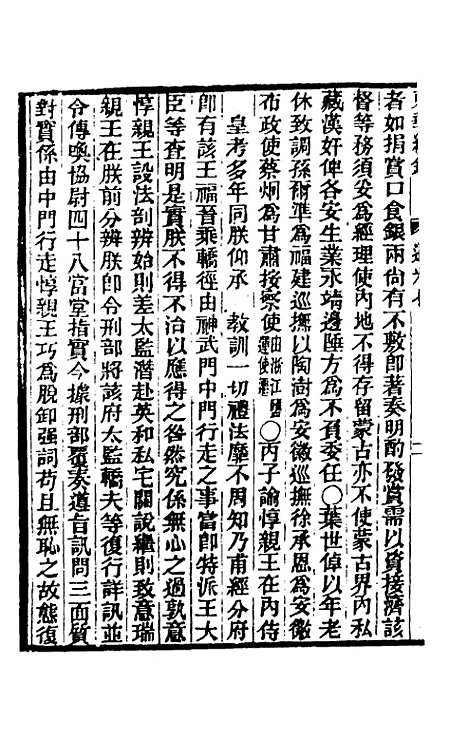 者如捐賞口食銀兩尚有不敷卽著奏明酌發賞需以資接濟該
督等務須妥爲經理使內地不得存留蒙古亦不使蒙古界內私
藏漢奸俾各安生業永靖邊陲方爲不負委任〇葉世倬以年老
休致調孫爾準爲福建巡撫以陶澍爲安徽巡撫徐承恩爲安徽
布政使蔡炯爲甘肅按察使由浙江鹽運使遷〇丙子諭惇親王在內侍
皇考多年同朕仰承　教訓一切禮法靡不周知乃甫經分府
卽有該王福晉乘轎徑由神武門中門行走之事當卽特派王大
臣等查明是實朕不得不治以應得之咎然究係無心之過孰意
惇親王設法剖辨始則差太監潛赴英和私宅關說繼則致意瑞
親王在朕前分辨朕卽令刑部將該府太監轎夫等復行詳訊並
令傳喚協尉四十八當堂指實今據刑部覆奏遵旨訊問三面質
對實係由中門行走惇親王巧爲脫卸强詞苟且無恥之故態復